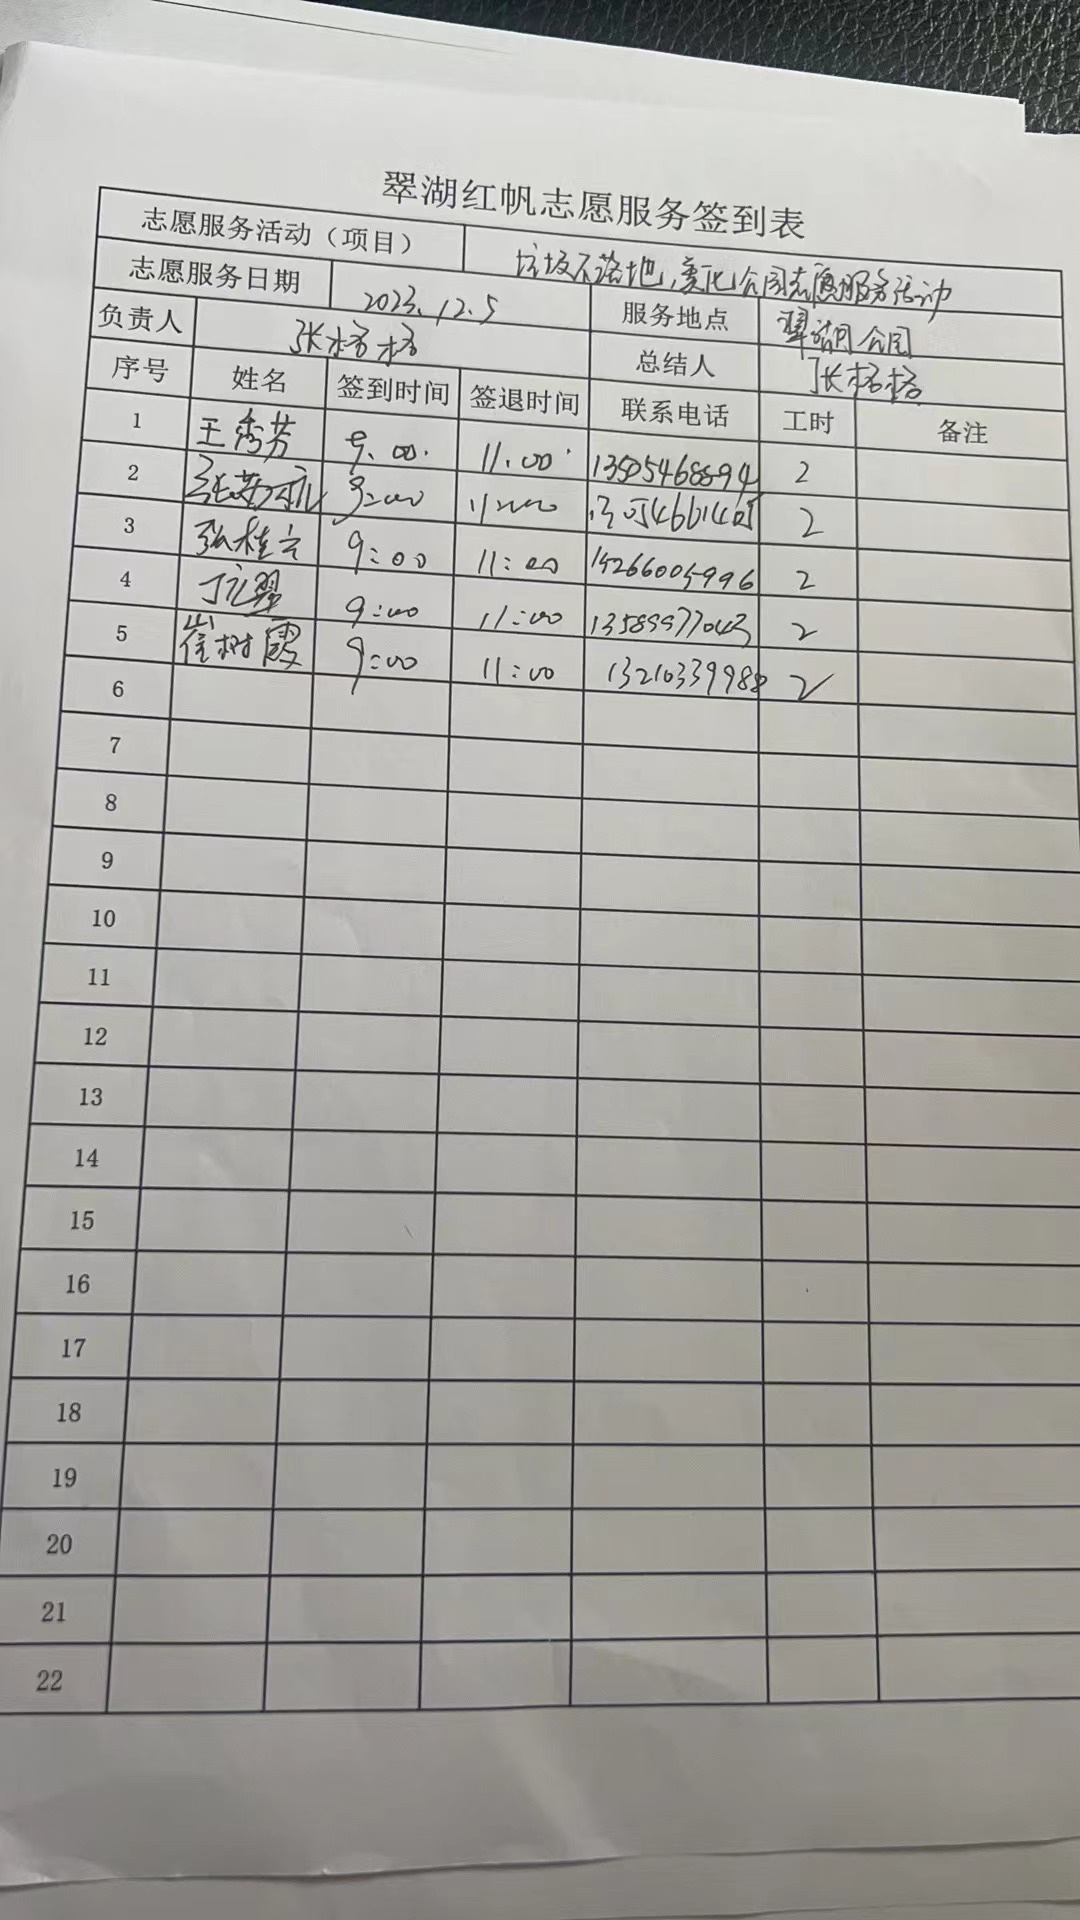 翠湖红帆志愿服务签到表
志愿服务活动（项目） 垃圾不落地，美化公园志愿服务活动
志愿服务日期 2023.12.5 服务地点 翠湖公园
负责人 张格格 总结人 张格格
序号 姓名 签到时间 签退时间 联系电话 工时 备注
1 王秀芳 9:00 11:00 13505468894 2
2 9:00 11:00 2
3 张桂云 9:00 11:00 15266005996 2
4 9:00 11:00 13589977043 2
5 崔树霞 9:00 11:00 13210339988 2
6
7
8
9
10
11
12
13
14
15
16
17
18
19
20
21
22